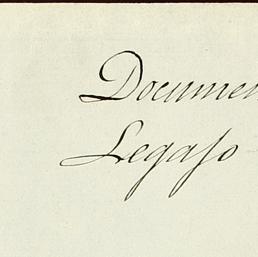 Documen
Legajo